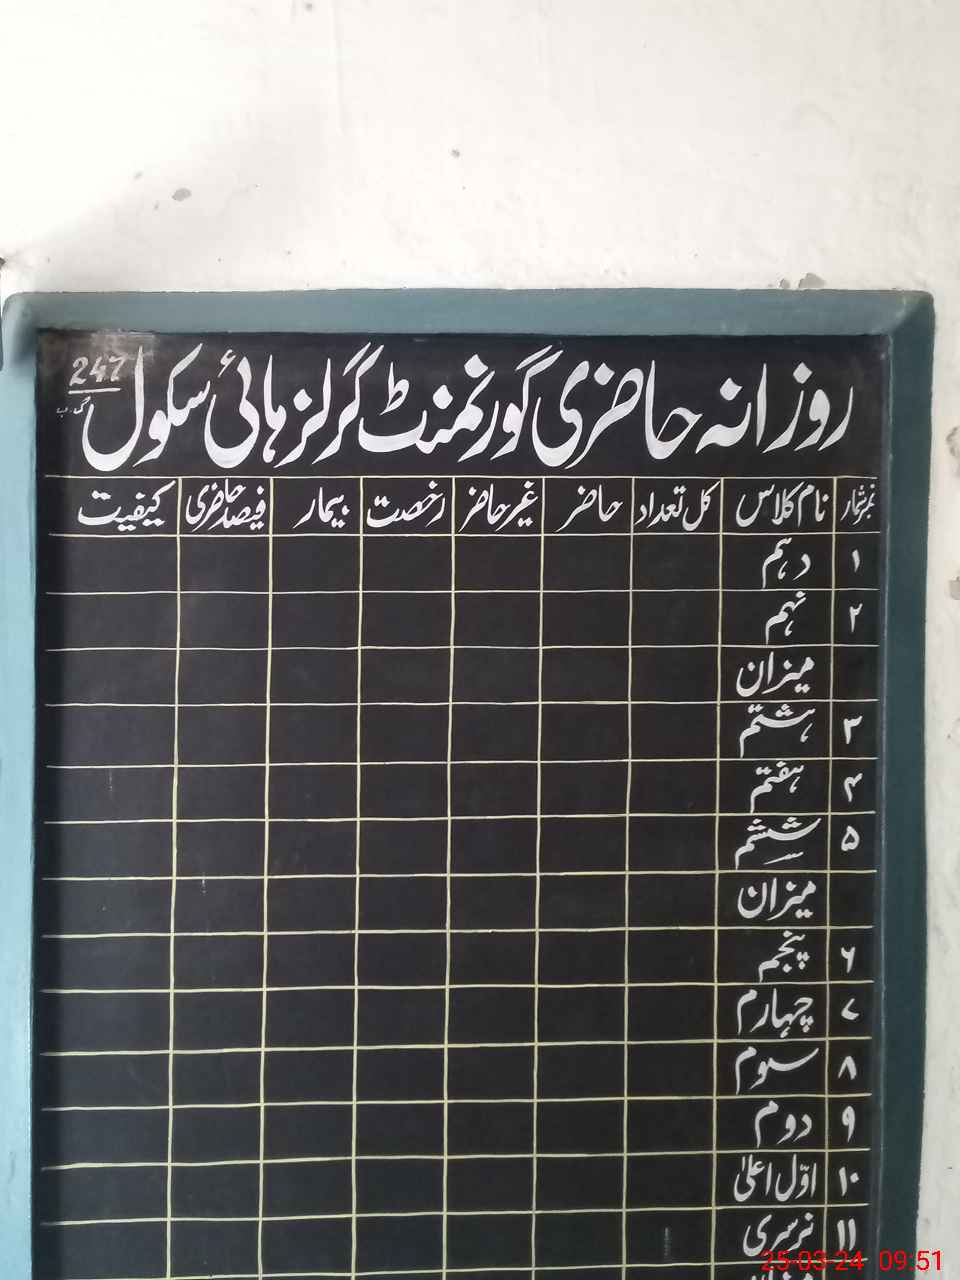 روزانہ حاضری گورنمنٹ گرلز ہائی سکول 247 گ ب
نمبر شمار نام کلاس کل تعداد حاضر غیر حاضر رخصت بیمار فیصد حاضری کیفیت
۱ دہم
۲ نہم
میزان
۳ ہشتم
۴ ہفتم
۵ ششم
میزان
۶ پنجم
۷ چہارم
۸ سوم
۹ دوم
۱۰ اوّل اعلیٰ
۱۱ نرسری
25-03-24 09:51